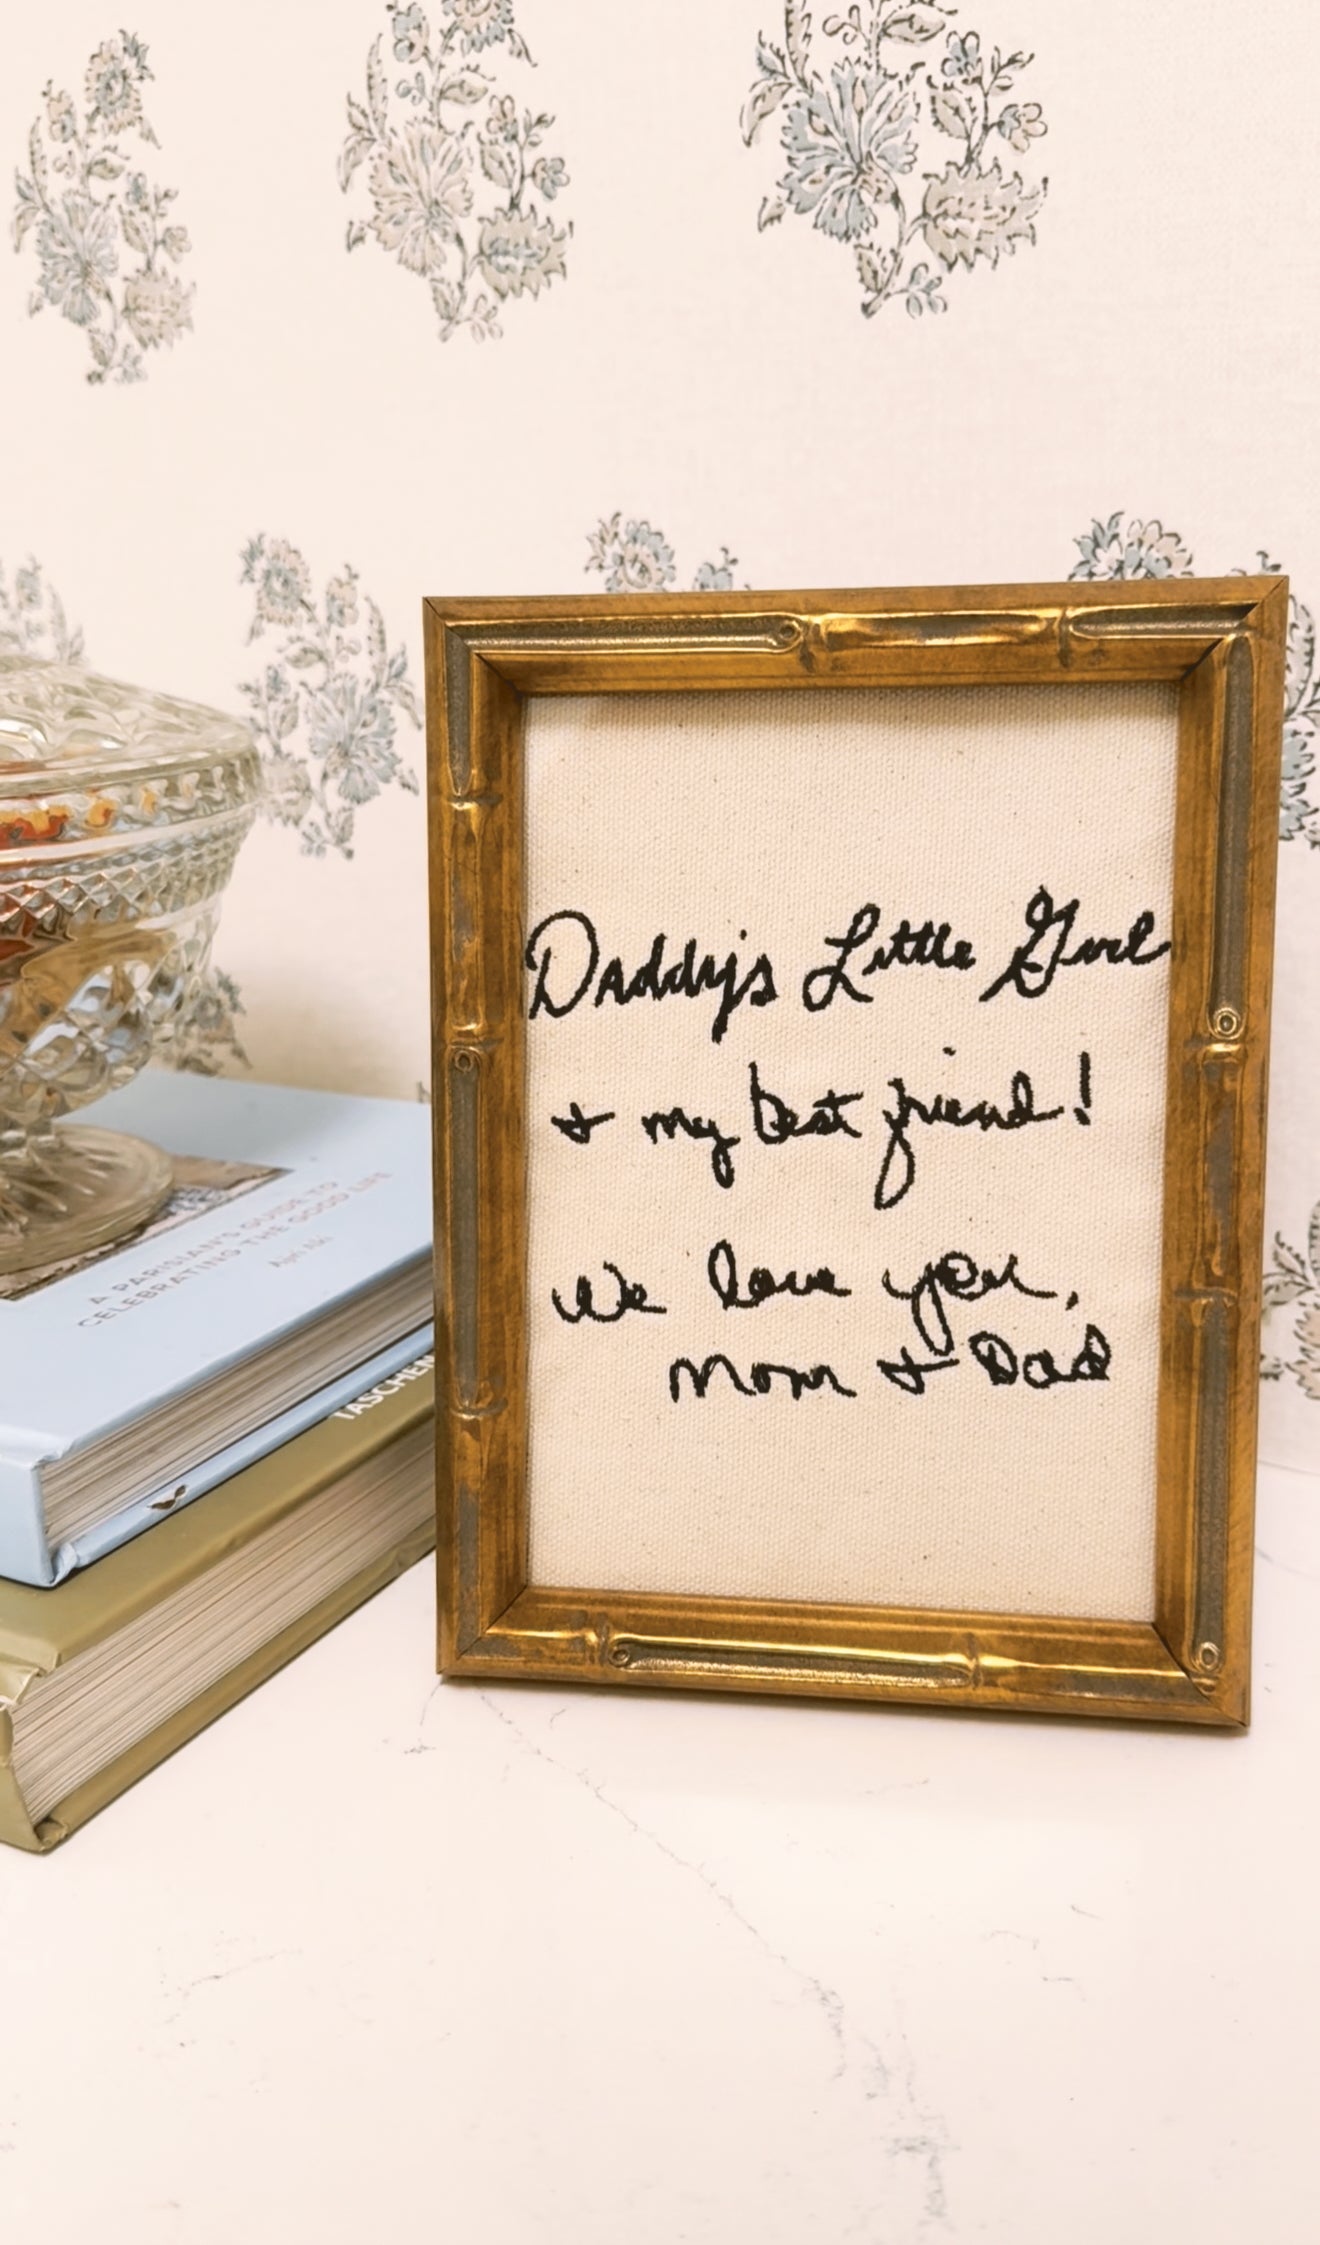 Daddy's Little Girl
& my best friend!
We love you,
Mom & Dad
A PARISIAN'S GUIDE TO
CELEBRATING THE GOOD LIFE
TASCHEN